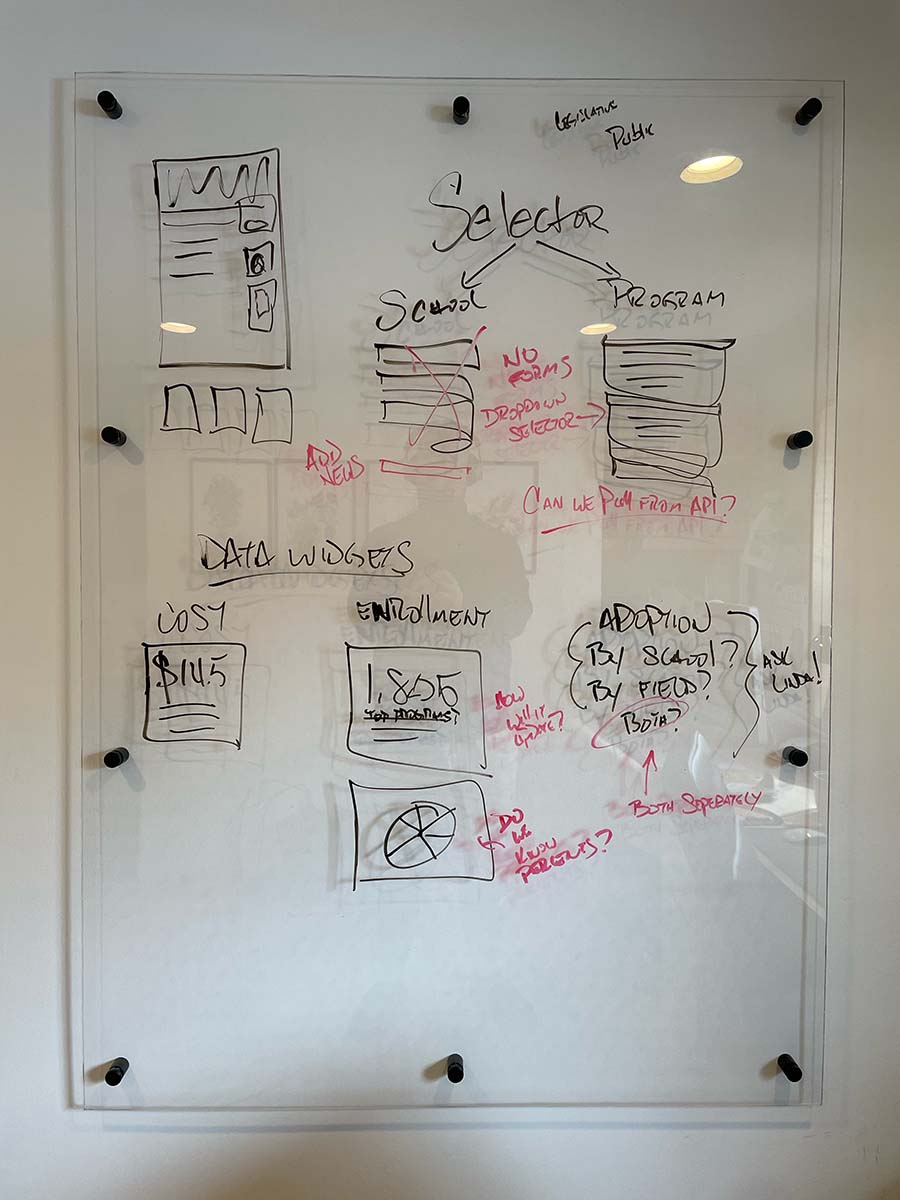 Legislative
Public
Selector
School
Program
No
Forms
Dropdown
Selector
Add
News
Can we pull from API?
Data Widgets
Cost
$14.5
Enrollment
1,856
Top Programs?
How
will it
update?
Do
we
know
percents?
Adoption
By School?
By Field?
Both?
Ask
Linda!
Both Seperately